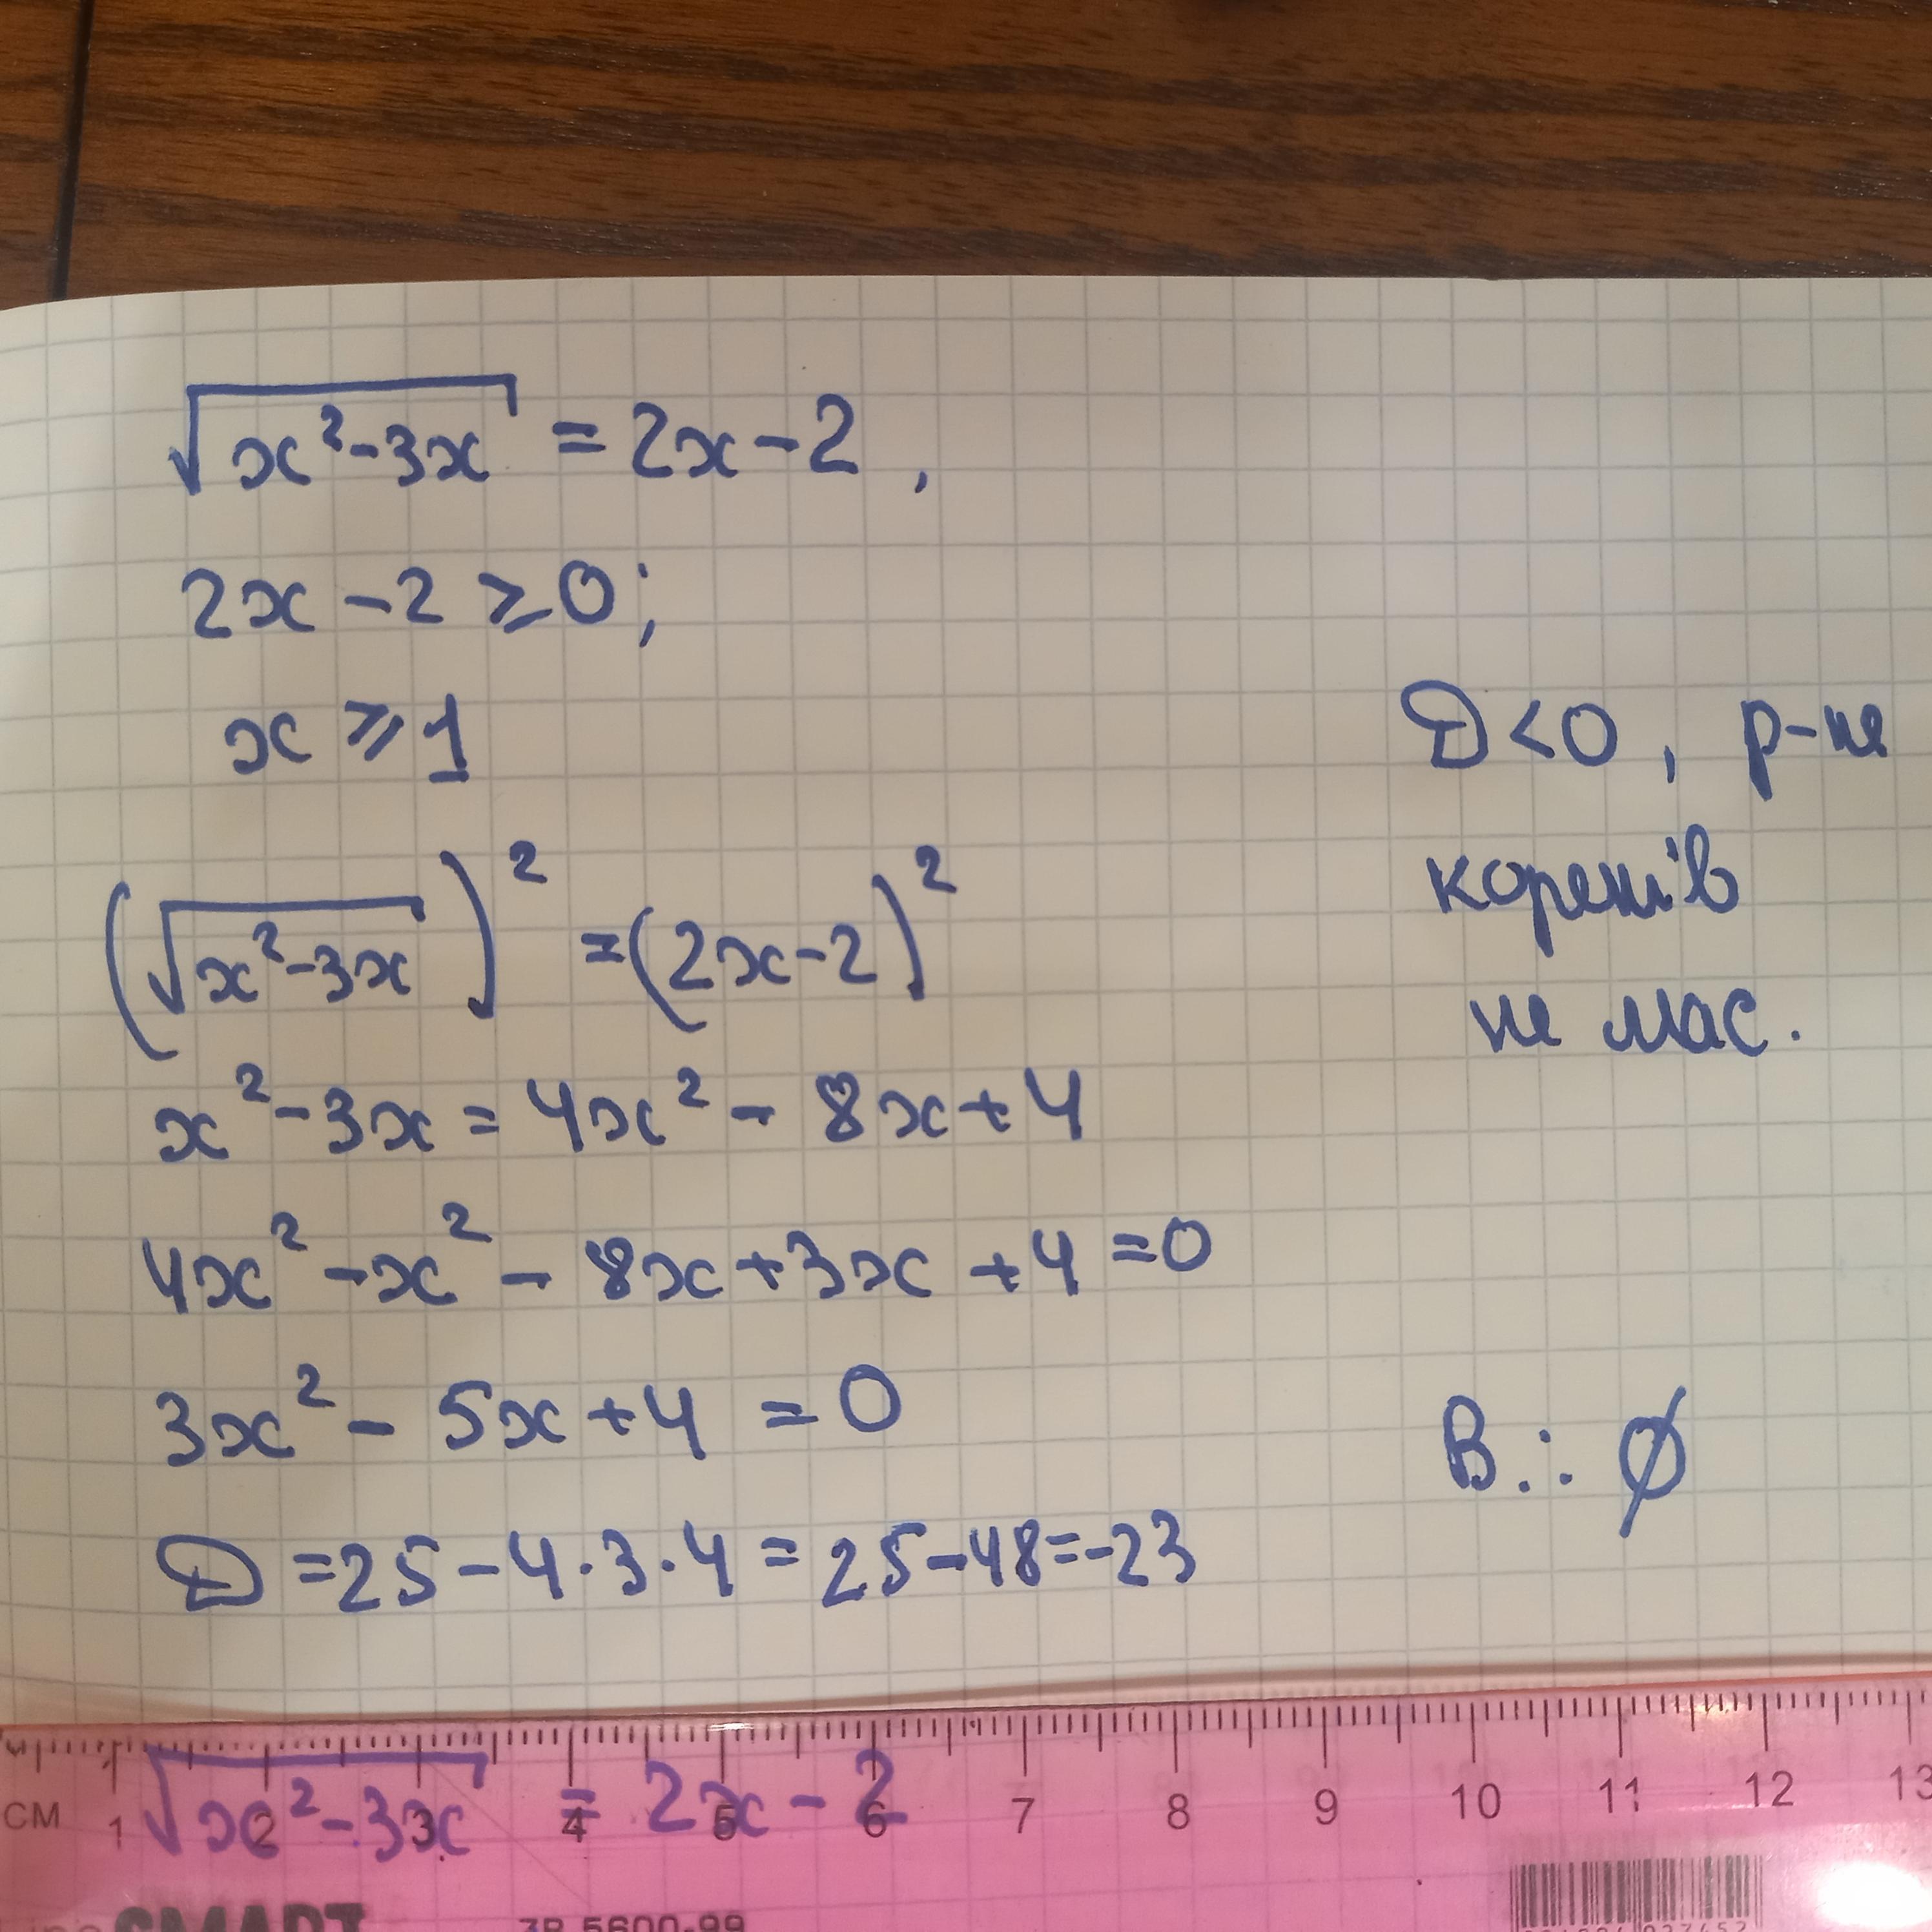 √(x²-3x) = 2x-2,
2x-2 ≥ 0;
x ≥ 1
(√(x²-3x))² = (2x-2)²
x²-3x = 4x² - 8x+4
4x²-x² - 8x+3x +4 =0
3x² - 5x+4 = 0
D = 25-4·3·4 = 25-48=-23
D<0, р-не
коренів
не має.
В.: ∅
√(x²-3x) = 2x-2
CM 1 2 3 4 5 6 7 8 9 10 11 12 13
SMART ZB.5600-99